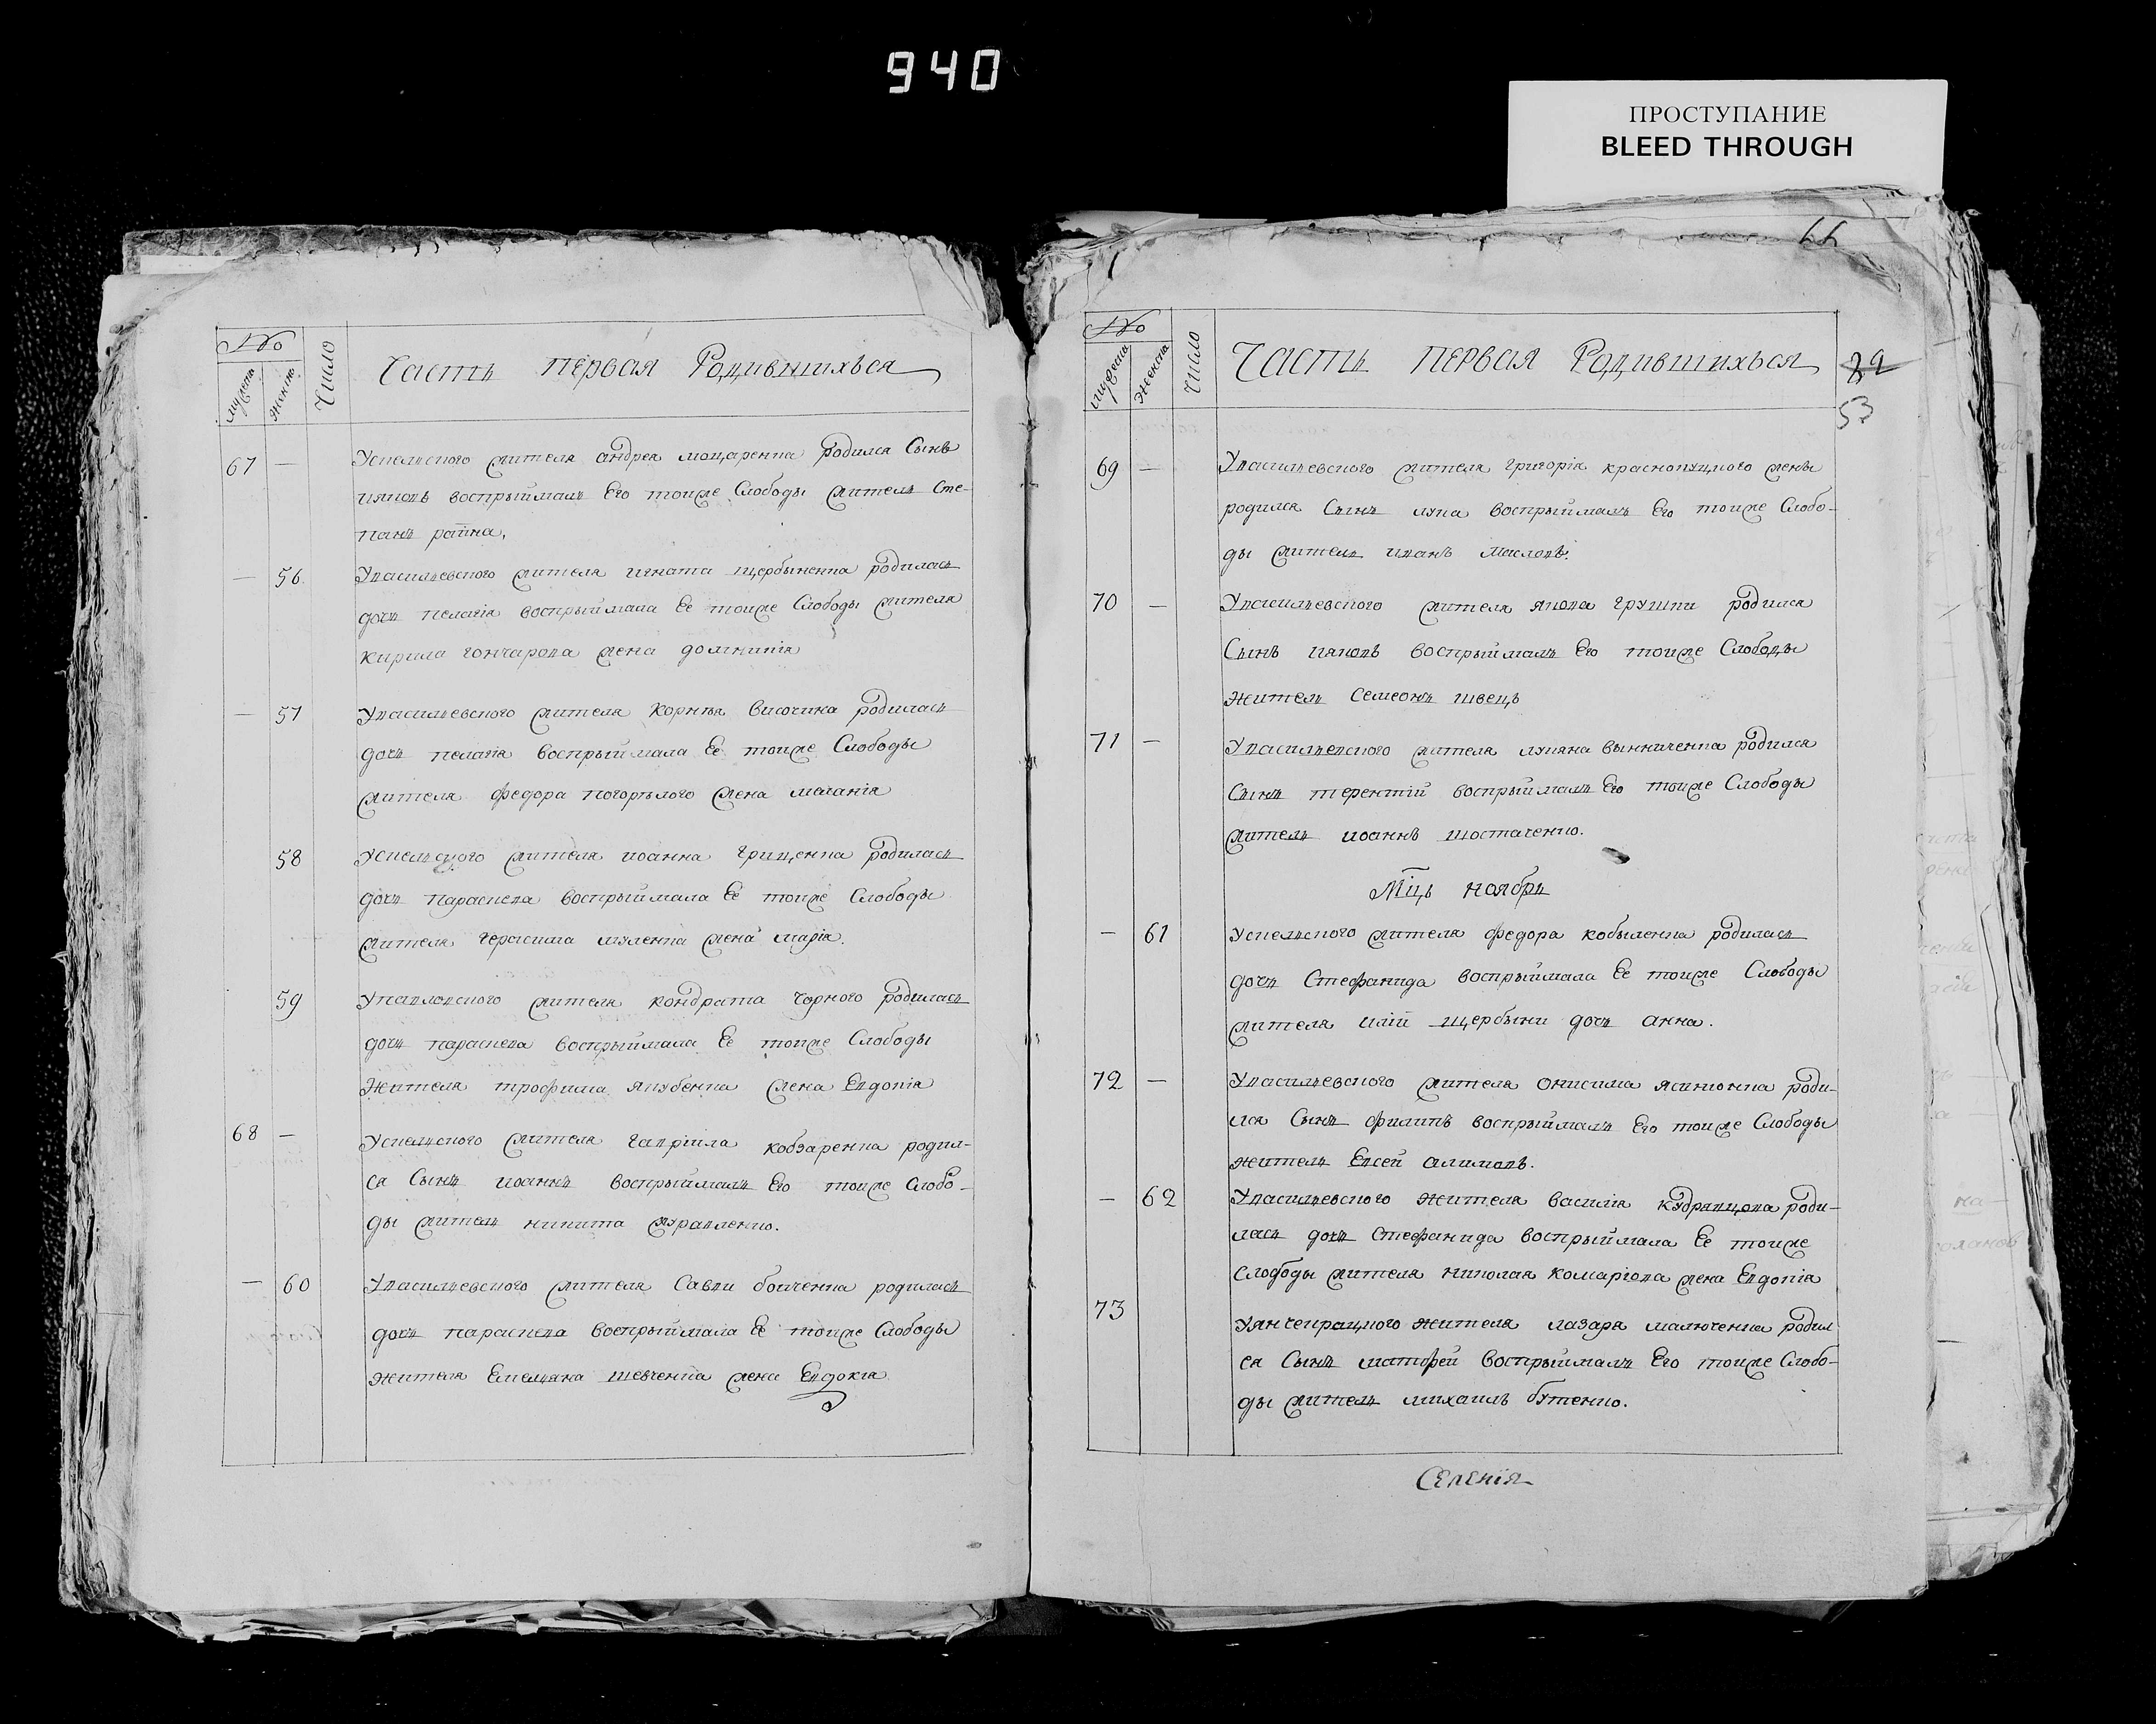 940
ПРОСТУПАНИЕ
BLEED THROUGH
66
№
мужеска
женска
Число
Часть первая Родившихъся
67 — Успенского жителя андрея моцаренка родился Сынъ
ияковъ воспрыймалъ Его тоиже Слободы житель Сте-
панъ
— 56 Увасильевского жителя игната щербыненка родилась
дочь пелагія воспрыймала Ее тоиже Слободы жителя
кирила гончарова жена домникія
— 57 Увасильевского жителя корнѣя височина родилась
дочь пелагія воспрыймала Ее тоиже Слободы
жителя федора погорѣлого жена маланія
58 Успенского жителя иоанна грищенка родилась
дочь параскева воспрыймала Ее тоиже Слободы
жителя герасима шуленка жена марія.
59 Упавловского жителя кондрата чорного родилась
дочь параскева воспрыймала Ее тоиже Слободы
жителя трофима якубенка жена Евдокія
68 — Успенского жителя гавріила кобзаренка родил-
ся Сынъ иоаннъ воспрыймалъ Его тоиже Слобо-
ды житель никита журавленко.
— 60 Увасильевского жителя Савки бойченка родилась
дочь параскева воспрыймала Ее тоиже Слободы
жителя Емельяна шевченка жена Евдокія
№
мужеска
женска
Число
Часть первая Родившихъся
29
53
69 — Увасильевского жителя григорія краснокуцкого жены
родился Сынъ лука воспрыймалъ Его тоиже Слобо-
ды житель иванъ масловъ.
70 — Увасильевского жителя якова грушки родился
Сынъ ияковъ воспрыймалъ Его тоиже Слободы
житель Семеонъ швецъ
71 — Увасильевского жителя лукяна вынниченка родился
Сынъ терентій воспрыймалъ Его тоиже Слободы
житель иоаннъ шостаченко.
Мцъ ноябрь
— 61 Успенского жителя федора кобыленка родилась
дочь Стефанида воспрыймала Ее тоиже Слободы
жителя иліи щербыни дочь анна.
72 — Увасильевского жителя онисима ясинкоика роди-
лся Сынъ филипъ воспрыймалъ Его тоиже Слободы
житель Евсей алимовъ.
— 62 Увасильевского жителя василія кудрявцова роди-
лась дочь Стефанида воспрыймала Ее тоиже
Слободы жителя николая комаріова жена Евдокія
73 Уянчекрацкого жителя лазаря малюченка родил
ся Сынъ матфей воспрыймалъ Его тоиже Слобо-
ды житель михаилъ бутенко.
Селенія